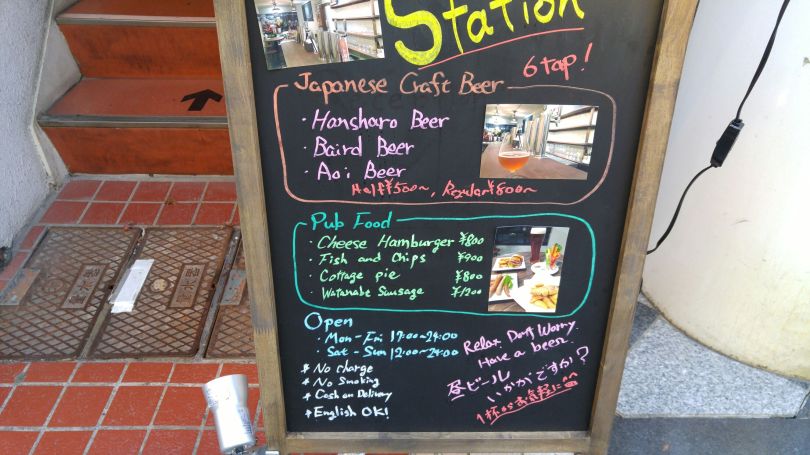 Station
6 tap!
Japanese Craft Beer
・Hansharo Beer
・Baird Beer
・Aoi Beer
Half ¥500~, Regular ¥800~
Pub Food
・Cheese Hamburger ¥800
・Fish and Chips ¥900
・Cottage pie ¥800
・Watanabe Sausage ¥1200
Open
・Mon-Fri 17:00~24:00
・Sat-Sun 12:00~24:00
* No charge
* No Smoking
* Cash on Delivery
* English OK!
Relax. Don't Worry.
Have a beer.
昼ビール
いかがですか?
1杯からお気軽に